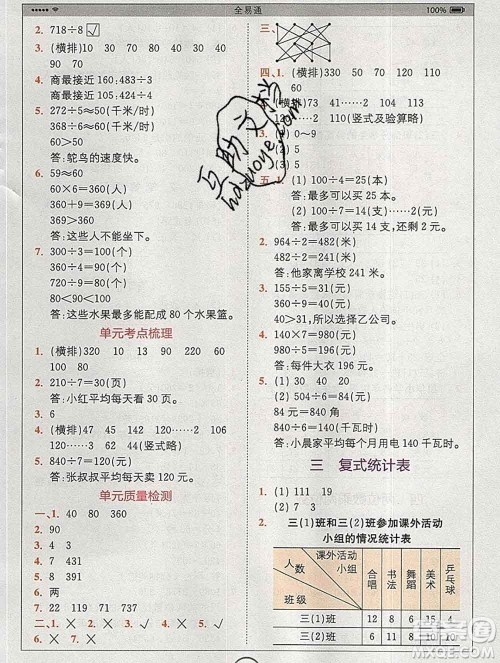 全易通
100%
2. 718÷8 ☑
3. (横排) 10 30 70 80 90 40
90 70
4. 商最接近 160:483÷3
商最接近 90:624÷7
5. 272÷5≈50(千米/时)
368÷6≈60(千米/时)
60>50
答:鸵鸟的速度快。
6. 59≈60
60×6=360(人)
360+9=369(人)
369<372
答:这些人不能坐下。
7. 300÷3=100(个)
540÷6=90(个)
720÷9=80(个)
80<90<100
答:这些水果最多能配成 80 个水果篮。
单元考点梳理
1. (横排) 320 10 13 90 160
100 80
2. 210÷7=30(页)
答:小红平均每天看 30 页。
3. 6
4. (横排) 47 45 142 120……6
120……3 44(竖式略)
5. 360÷3=120(千克)
答:张叔叔平均每天卖出 120 千克。
单元质量检测
一、1. 40 80 360
2. 90
3. 4 3
4. > < > <
5. 431 9 2
6. 两
7. 22 119 71 737
二、1. × 2. × 3. × 4. × 5. ×
6. × 7. × 8. ×
三、
四、1. (横排) 330 50 70 120 110
60
2. (横排) 73 41……2 194
120……2 110(竖式及验算略)
3. (1) 0~9
(2) 5
(3) 5
五、1. (1) 100÷4=25(本)
答:最多可以买 25 本。
(2) 100÷7=14(支)……2(元)
答:最多可以买 14 支,还剩 2 元。
2. 964÷2=482(米)
482÷2=241(米)
答:他家离学校 241 米。
3. 155÷5=31(元)
280÷7=40(元)
40>31,所以选择乙公司。
4. 140×7=980(元)
980÷5=196(元)
答:每件大衣 196 元。
5. (1) 504÷6=84(元)
(2) 504÷6=84(元)
84元=840 角
840÷6=140(千瓦时)
答:小晨家平均每个月用电 140 千瓦时。
三 复式统计表
1. (1) 111 19
(2) 3 7
2. 三(1)班和三(2)班参加课外活动
小组的情况统计表
课外活动小组 人数 班级 合唱 书法 舞蹈 美术 乒乓球
三(1)班 12 8 6 15 4
三(2)班 6 11 8 10
互助文档
huzuoye.com
MXQE.COM